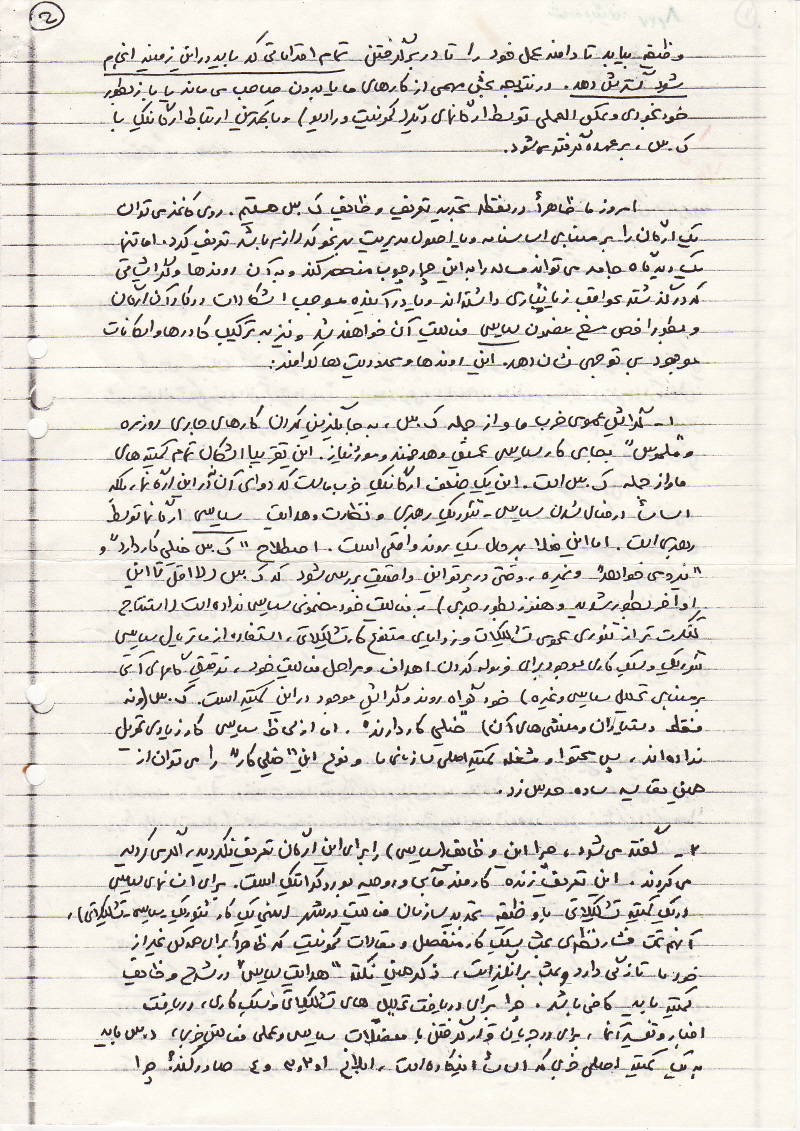 ۲
وظیفه بیاید تا دامنه عمل خود را تا در برگرفتن تمام اقداماتی که باید در این زمینه انجام
شود گسترش دهد. در نتیجه بخش مهمی از کارهای ما یا بدون صاحب می‌ماند یا باز بطور
خودبخودی و عکس العملی توسط ارگانهای دیگر (کمونیست و رادیو) و با کمترین ارتباط ارگانیک با
ک.س، بر عهده گرفته می‌شود.
امروز ما ظاهراً در نقطه تجدید تعریف وظائف ک.س هستیم. روی کاغذ می‌توان
یک ارگان را بر مبنای اساسنامه و یا اصول مدیریت بهر نحو که لازم باشد تعریف کرد. اما تنها
یک دیدگاه جامد می‌تواند مساله را به این چهارچوب منحصر کند و به آن روندها و گرایشاتی
که در گذشته عواقب زیانباری داشته‌اند و یا در آینده موجب اشکالات در کار آن ارگان
و بطور اخص مسخ مضمون سیاسی فعالیت آن خواهند شد و نیز به ترکیب کادرها و امکانات
موجود بی توجهی نشان دهد. این روندها و محدودیت‌ها کدامند:
۱- گرایش عمومی حزب ما و از جمله ک.س، به جایگزین کردن کارهای جاری روزمره
و "ملموس" بجای کار سیاسی عمیق و هدفمند و مورد نیاز. این تقریباً اشکال تمام کمیته‌های
ما و از جمله ک.س است. این یک ضعف ارگانیک حزب ماست که دوای آن نه در این ارگانها، بلکه
اساساً در فعال شدن سیاسی - تئوریک رهبری و نظارت و هدایت سیاسی ارگانها توسط
رهبری است. اما این خلاء بهر حال یک روند واقعی است. اصطلاح "ک.س خیلی کار دارد" و
"نیرو می‌خواهد" و غیره، وقتی در پرتو این واقعیت بررسی شود که ک.س (لااقل تا این
اواخر بطور شدید و هنوز بطور جدی) به فعالیت خود مضمونی سیاسی نداده است (استنتاج
کنکرت‌تر از تئوری عمومی تشکیلات و زوایای متنوع کار تشکیلاتی، استفاده از ماتریال سیاسی
تئوریک و سبک کاری موجود برای فرموله کردن اهداف و مراحل فعالیت خود، تدقیق گامهای آتی
بر مبنای تحلیل سیاسی و غیره) خود گواه روند و گرایش موجود در این کمیته است. ک.س (و نه
فقط دستیاران و منشی‌های آن) "خیلی کار دارند". اما از لحاظ سیاسی کار زیادی تحویل
نداده‌اند، پس محتوا و مشغله کمیته اصلی سازمانی ما و نوع این "خیلی کار" را می‌توان از
همین مقایسه ساده حدس زد.
۲- گفته می‌شود، چرا این وظائف (سیاسی) را برای این ارگان تعریف نکردید، اگر می‌کردید
می‌کردند. این تعریف زنده کارمند مآبی و روحیه بوروکراتیک است. برای انسانهای سیاسی
در یک کمیته تشکیلاتی با وظیفه تجدید سازمان فعالیت در شهر (یعنی یک کار تئوریک - سیاسی - تشکیلاتی)،
آنهم تحت فشار نظری بحث سبک کار مفصل و مقالات کمونیست که ظاهراً برای همه کس غیر از
خود ما تازگی دارد و بحث برانگیز است، ذکر همین نکته "هدایت سیاسی" در شرح وظائف
کمیته باید کافی باشد. چرا برای دریافت تحلیل های تشکیلاتی و سبک کاری، دریافت
اخبار و تفسیر آنها، برای در جریان قرار گرفتن با معضلات سیاسی و عملی فعالین حزبی، د.س باید
به یک کمیته اصلی حزبی که اساساً اینکاره است، ابلاغ ۱ و ۲ و ۳ و ۴ صادر کند؟ چرا